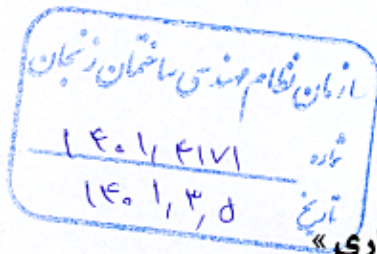 سازمان نظام مهندسی ساختمان زنجان
شماره ۱۴۰۱/۴۱۷۱
تاریخ ۱۴۰۱/۳/۵